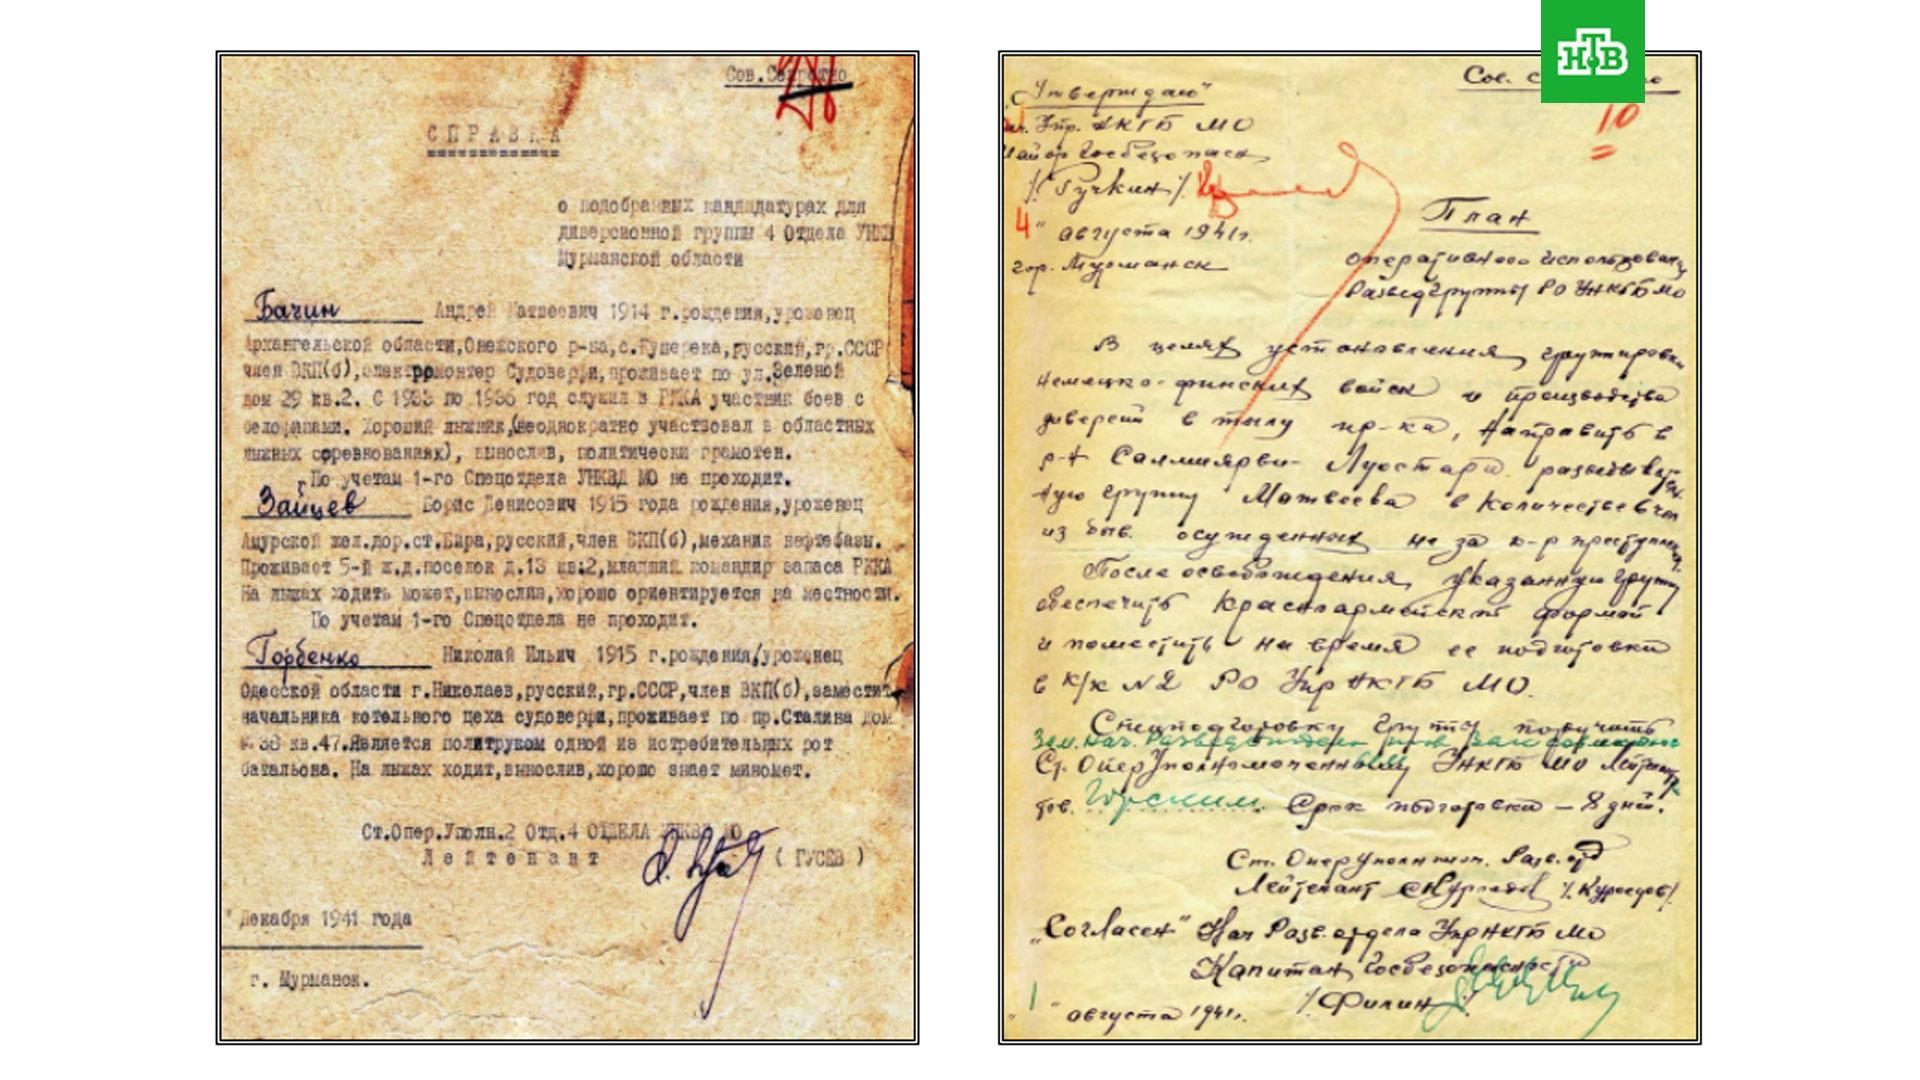 НТВ
Сов.Секретно
СПРАВКА
о подобранных кандидатурах для
диверсионной группы 4 Отдела УНКВД
Мурманской области
Бачин Андрей Матвеевич 1914 г.рождения,уроженец
Архангельской области,Онежского р-на,с.Куперека,русский,гр.СССР
член ВКП(б),электромонтер Судоверфи,проживает по ул.Зеленой
дом 29 кв.2. С 1933 по 1936 год служил в РККА участник боев с
белофинами. Хороший лыжник,(неоднократно участвовал в областных
лыжных соревнованиях), вынослив, политически грамотен.
По учетам 1-го Спецотдела УНКВД МО не проходит.
Зайцев Борис Денисович 1915 года рождения,уроженец
Амурской жел.дор.ст.Бира,русский,член ВКП(б),механик нефтебазы.
Проживает 5-й ж.д.поселок д.13 кв:2,младший командир запаса РККА
На лыжах ходить может,вынослив,хорошо ориентируется на местности.
По учетам 1-го Спецотдела не проходит.
Горбенко Николай Ильич 1915 г.рождения,уроженец
Одесской области г.Николаев,русский,гр.СССР,член ВКП(б),заместит.
начальника котельного цеха судоверфи,проживает по пр.Сталина дом
№ 38 кв.47.Является политруком одной из истребительных рот
батальона. На лыжах ходит,вынослив,хорошо знает миномет.
Ст.Опер.Уполн.2 Отд.4 ОТДЕЛА УНКВД МО
Лейтенант ( ГУСЕВ )
" Декабря 1941 года
г. Мурманск.
Сов. с
10
"Утверждаю"
Нач. Упр. НКГБ МО
Майор Госбезопасн.
/Ручкин/
4 " августа 1941г.
гор. Мурманск
План
оперативного использован.
Разведгруппы РО УНКГБ МО
В целях установления группировки
немецко-финских войск и производства
диверсий в тылу пр-ка, направить в
р-н Салмиярви-Луостари разведыват.
ную группу Матвеева в количестве 8 чел
из быв. осужденных не за к-р преступлен.
После освобождения, указанную группу
обеспечить Красноармейской формой
и поместить на время ее подготовки
в к/к №2 РО Упр НКГБ МО.
Спецподготовку группы поручить
Зам. нач. Разведотдела
Ст. Оперуполномоченным УНКГБ МО Лейтенант
тов. Горским. Срок подготовки – 8 дней.
Ст. Оперуполномоч. Развед
Лейтенант /Куроедов/
"Согласен" Нач Разв.отдела УпрНКГБ МО
Капитан Госбезопасности
/Филин/
1 " августа 1941г.